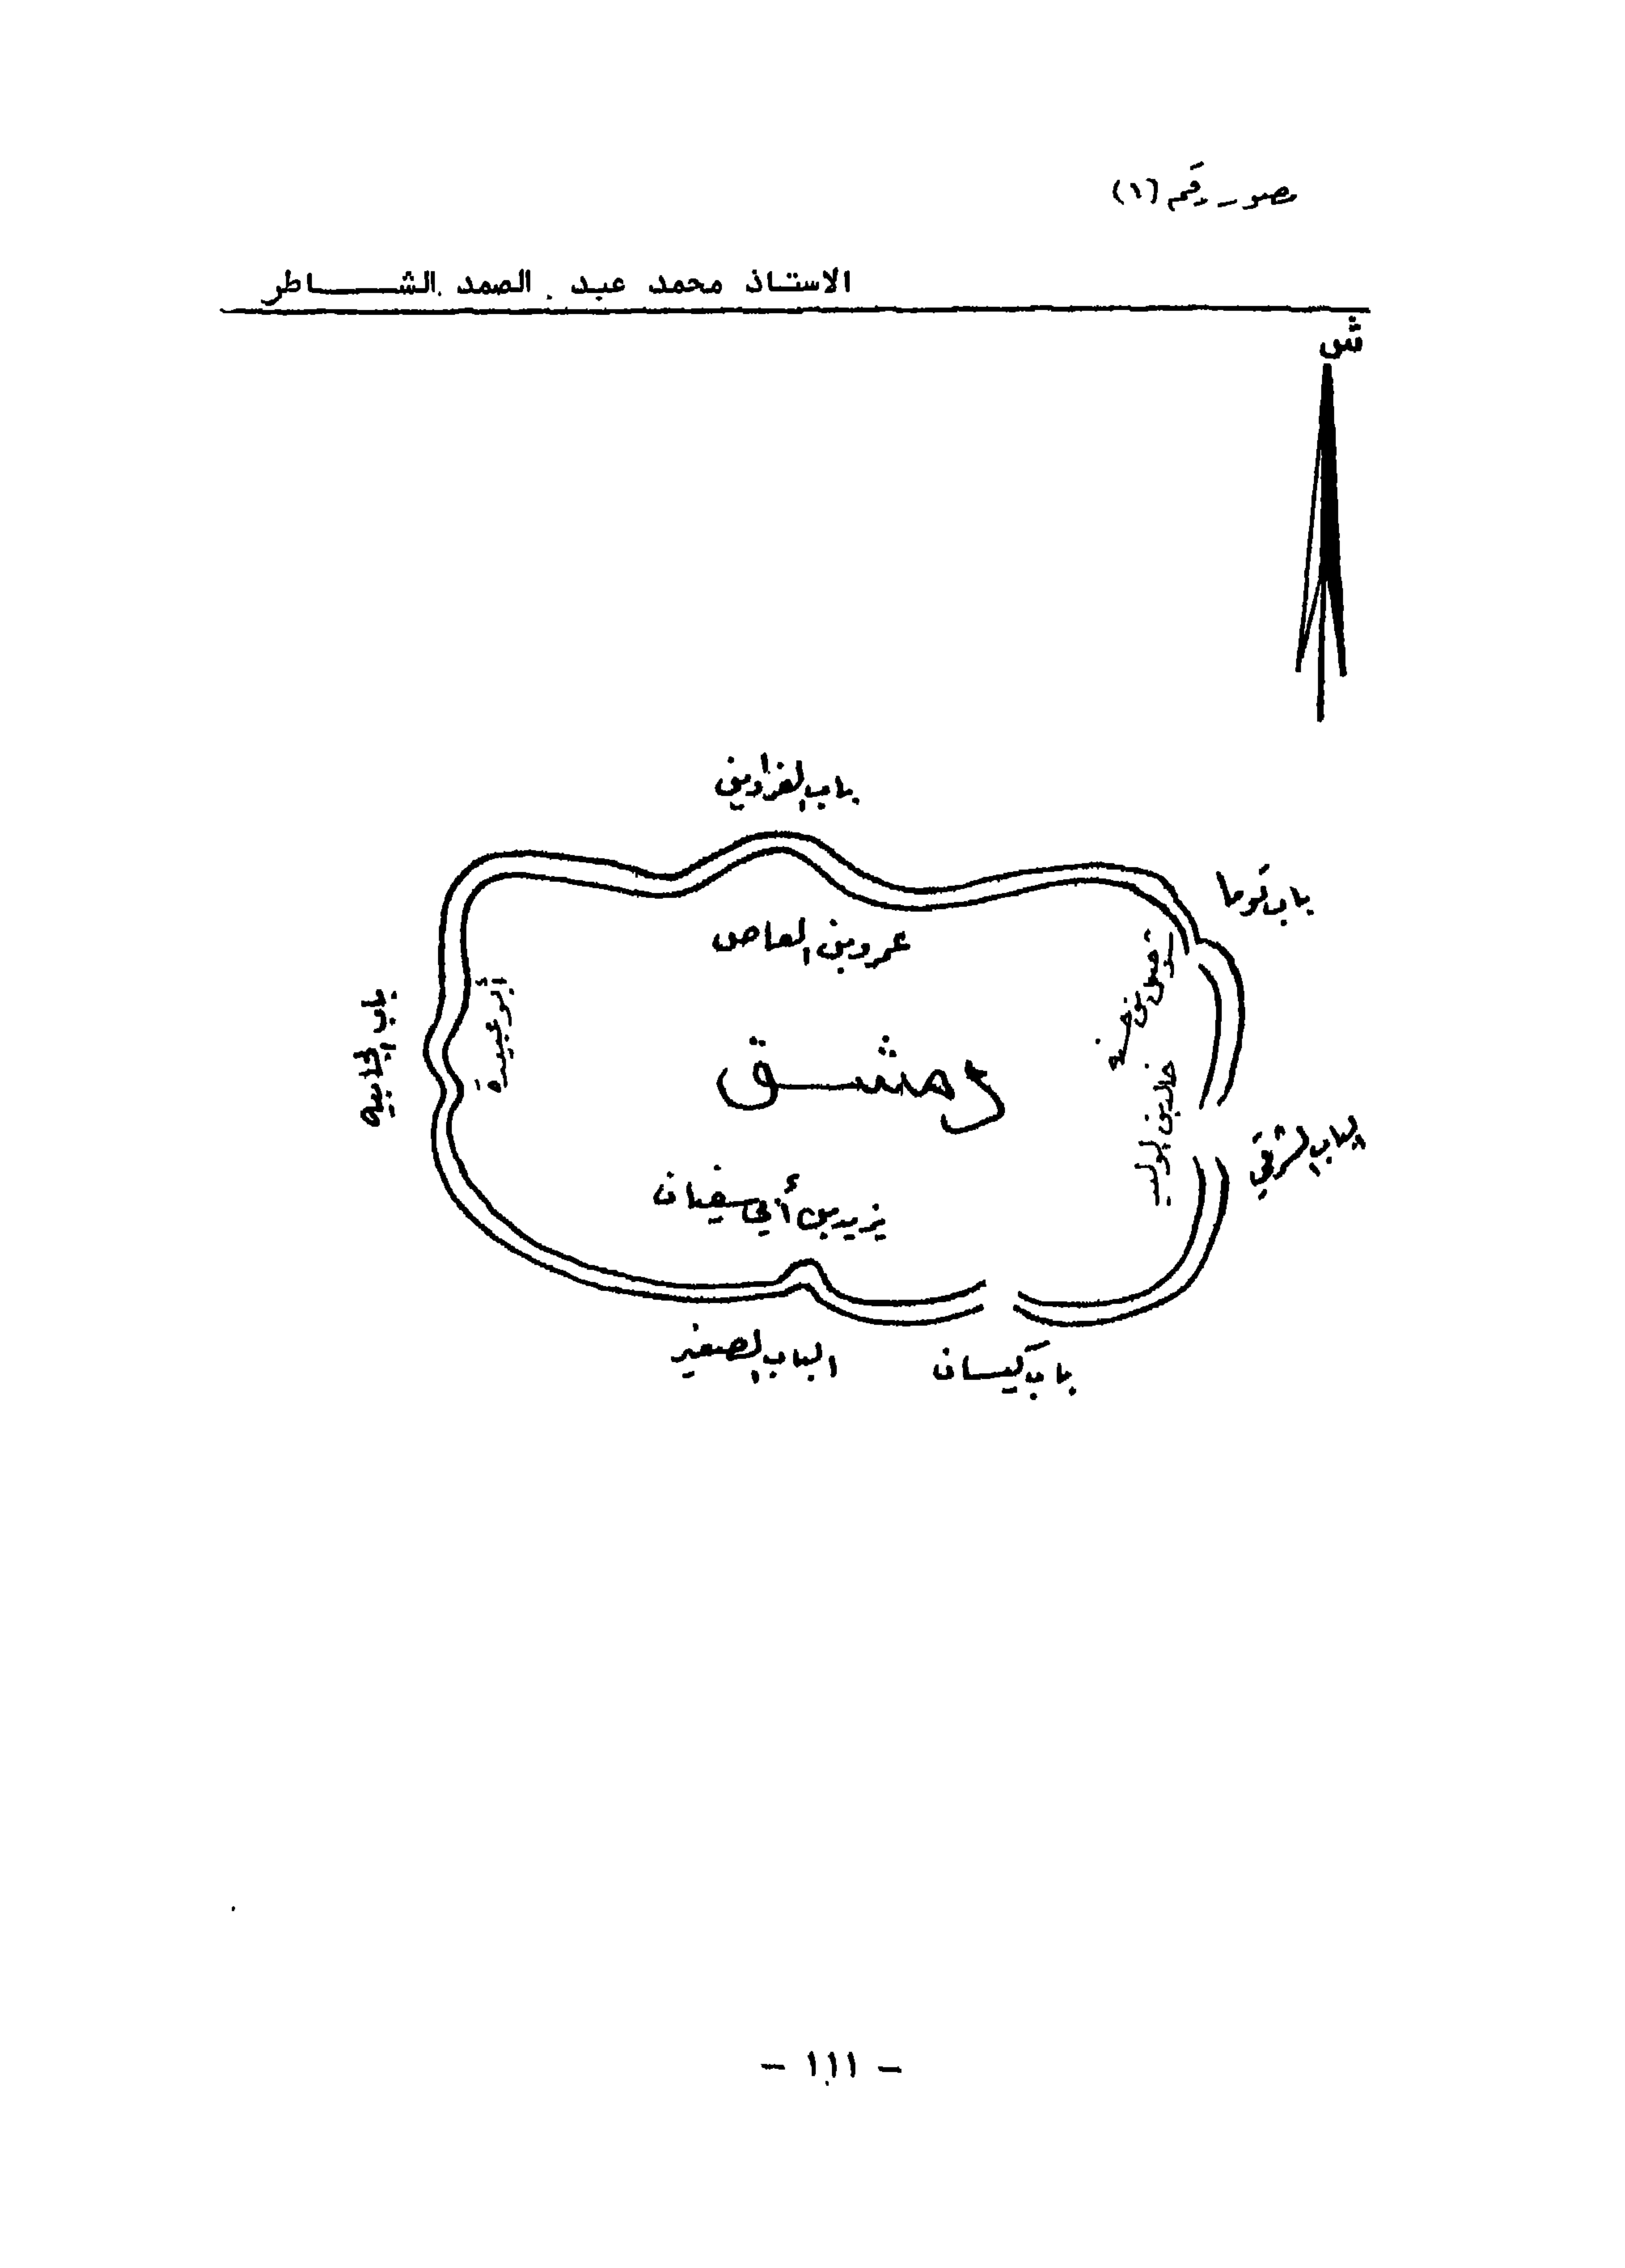 مصور رقم (١)
الاستاذ محمد عبد الصمد الشـــــاطر
ش
باب الفراديس
باب توما
عمرو بن العاص
شرحبيل بن حسنة
باب الجابيه
أبو عبيدة
دمشــق
خالد بن الوليد
الباب الشرقي
يزيد بن أبي سفيان
الباب الصغير
باب كيسان
- ١١١ -